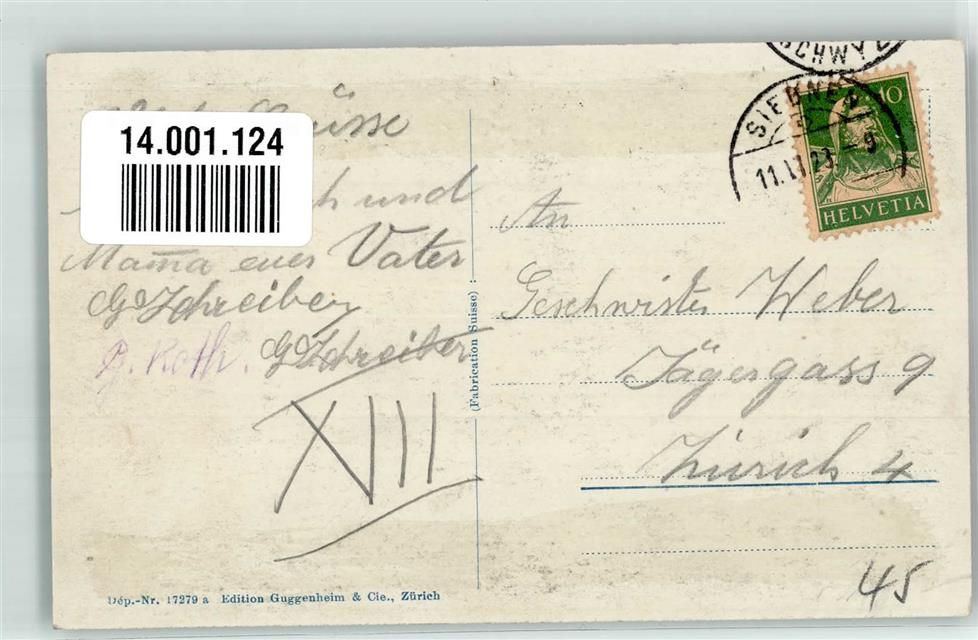 Grüsse
14.001.124
und
Mama euer Vater
G Schreiber
G. Roth. G Schreiber
XIII
(Fabrication Suisse)
Dép.-Nr. 17279 a Edition Guggenheim & Cie., Zürich
SCHWYZ
SIEBNEN
11.VI.23-9
10
HELVETIA
An
Geschwister Weber
Jägergass 9
Zürich 4
45